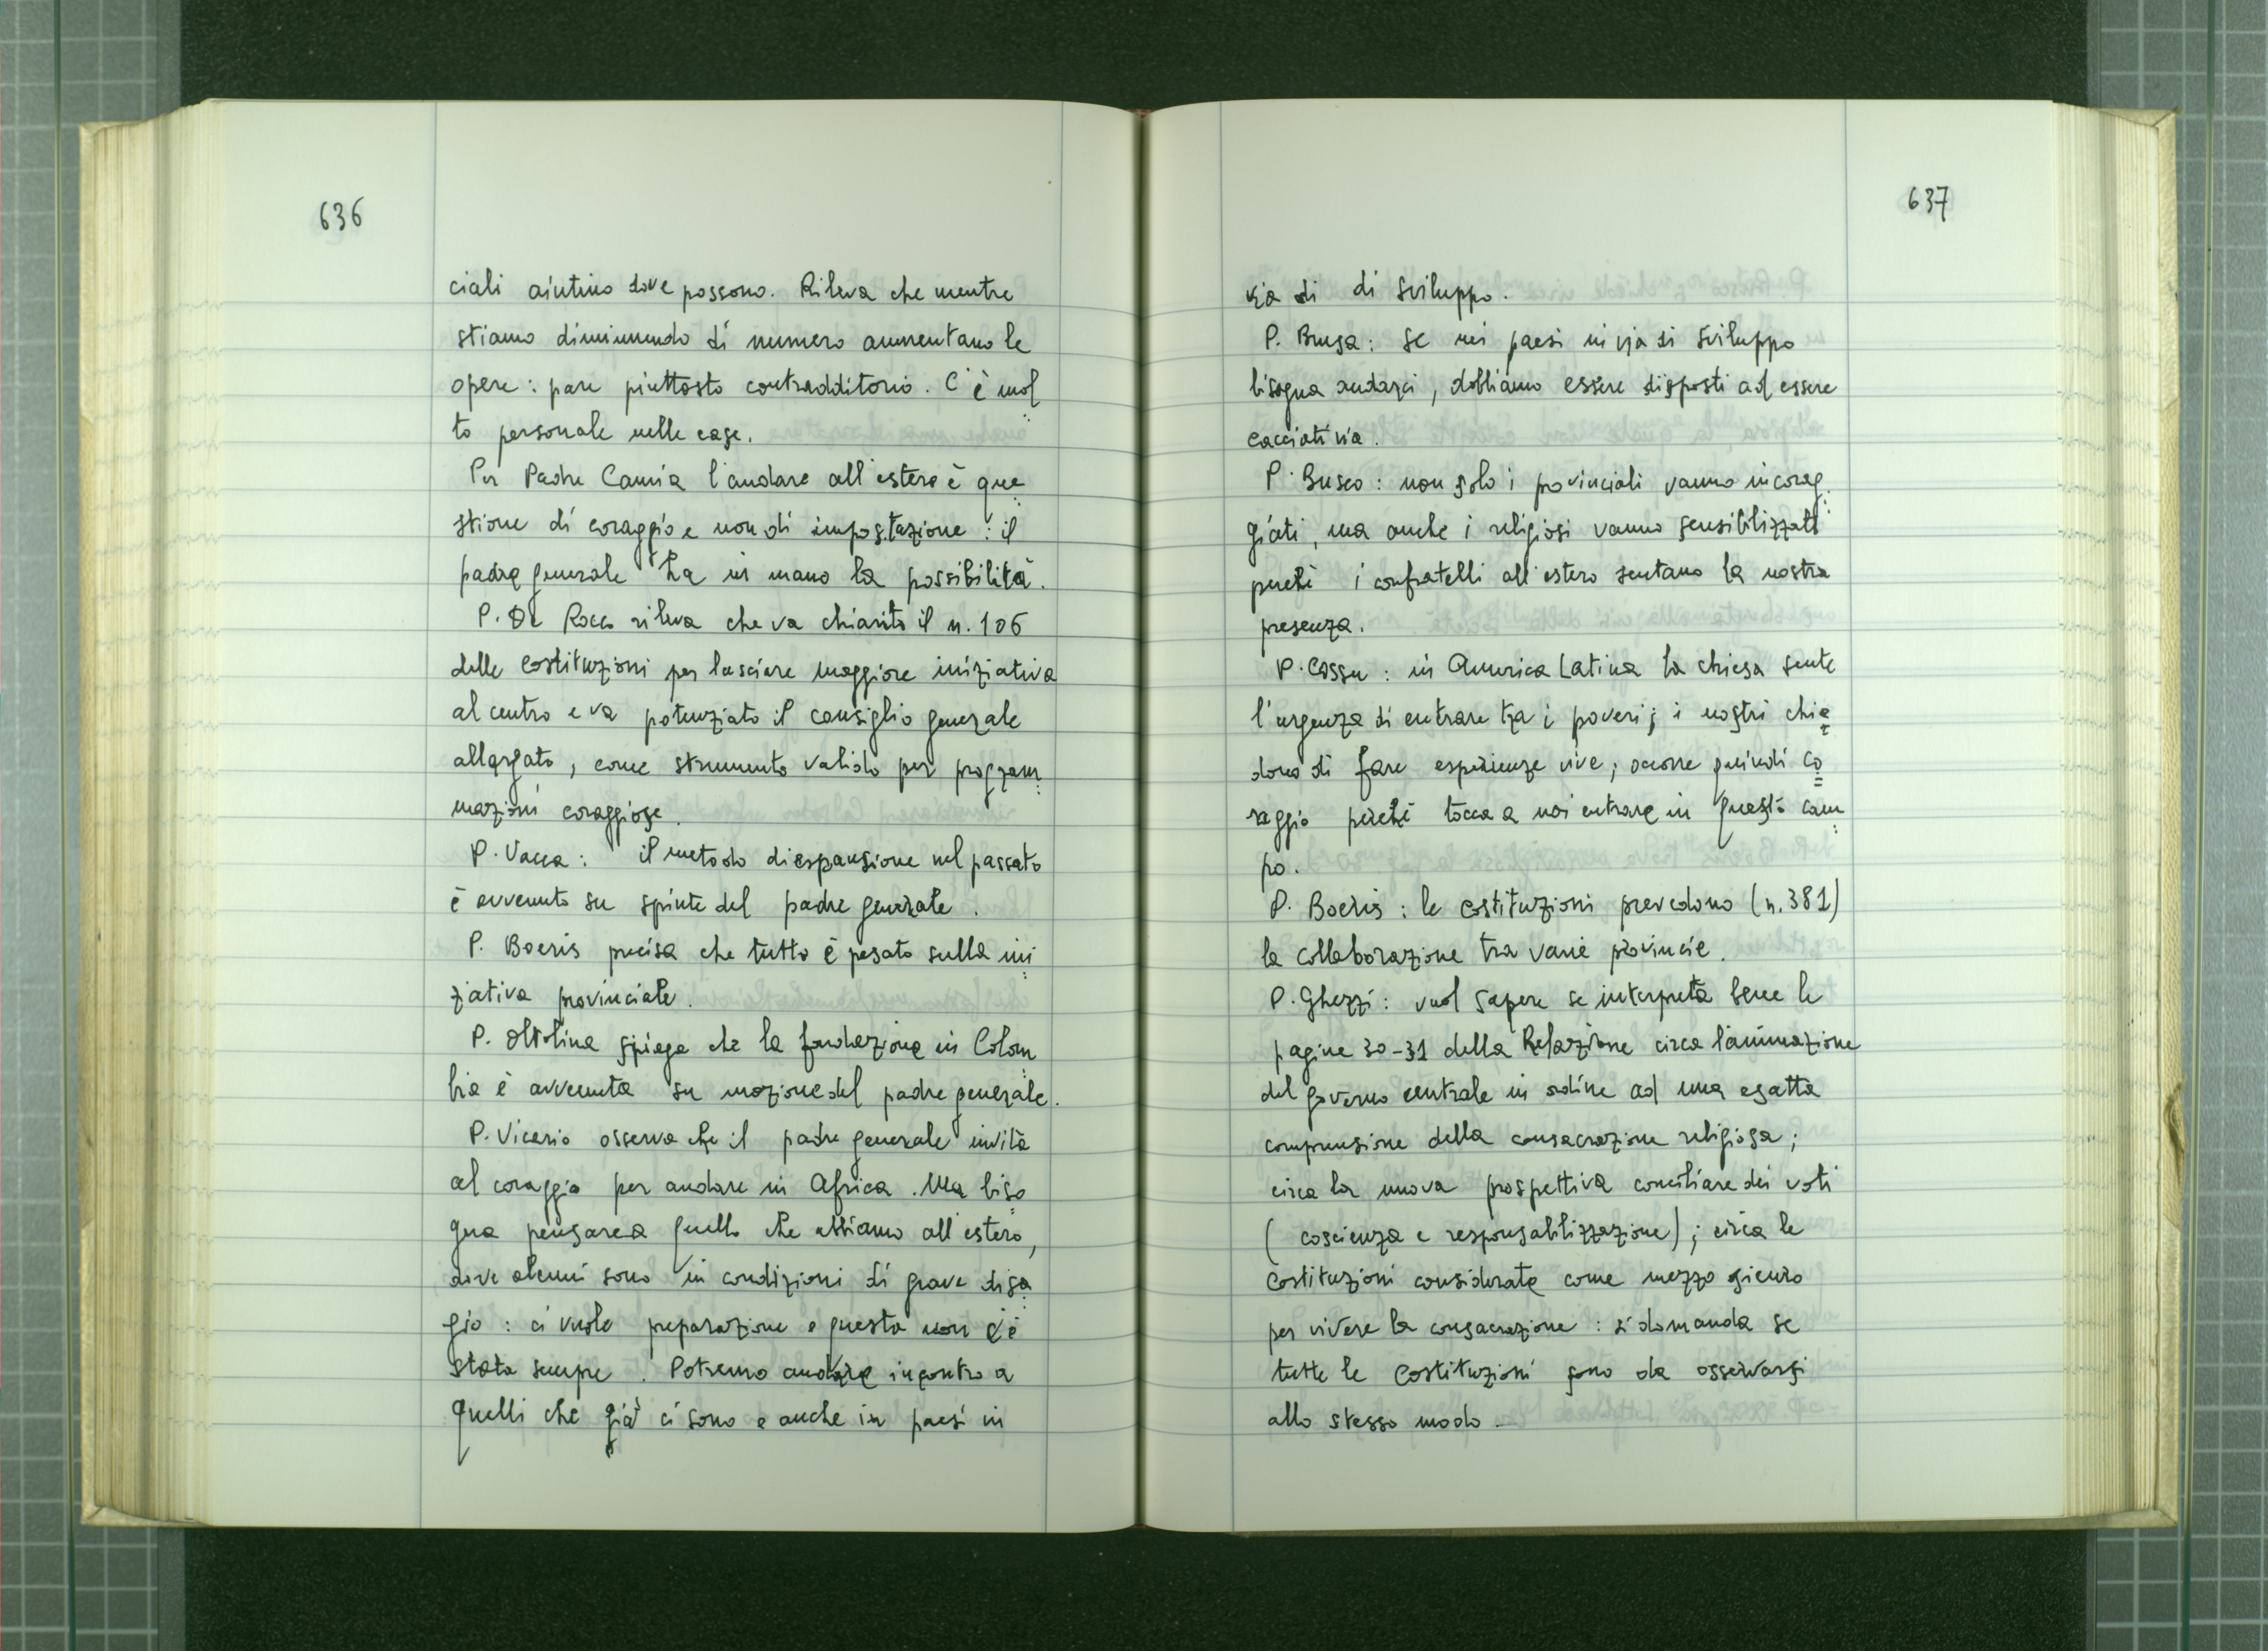 636
ciali aiutino dove possono. Rileva che mentre
stiamo diminuendo di numero aumentano le
opere: pare piuttosto contradditorio. C'è mol
to personale nelle case.
Per Padre Camia l'andare all'estero è que
stione di coraggio e non di impostazione: il
padre generale ha in mano la possibilità.
P. De Rocco rileva che va chiarito il n. 106
delle costituzioni per lasciare maggiore iniziativa
al centro e va potenziato il consiglio generale
allargato, come strumento valido per program
mazioni coraggiose.
P. Vacca: il metodo di espansione nel passato
è avvenuto su spinte del padre generale.
P. Boeris precisa che tutto è pesato sulla ini
ziativa provinciale.
P. Oltolina spiega che la fondazione in Colom
bia è avvenuta su mozione del padre generale.
P. Vicario osserva che il padre generale invita
al coraggio per andare in Africa. Ma biso
gna pensare a quello che abbiamo all'estero,
dove alcuni sono in condizioni di grave disa
gio: ci vuole preparazione e questa non c'è
stata sempre. Potremo andare incontro a
quelli che già ci sono e anche in paesi in
637
via di di sviluppo.
P. Brusa: se nei paesi in via di sviluppo
bisogna andarci, dobbiamo essere disposti ad essere
cacciati via.
P. Busco: non solo i provinciali vanno incorag
giati, ma anche i religiosi vanno sensibilizzati
perchè i confratelli all'estero sentano la nostra
presenza.
P. Cossu: in America Latina la chiesa sente
l'urgenza di entrare tra i poveri; i nostri chie
dono di fare esperienze vive; occorre quindi co
raggio perchè tocca a noi entrare in questo cam
po.
P. Boeris: le costituzioni prevedono (n. 381)
la collaborazione tra varie provincie.
P. Ghezzi: vuol sapere se interpreta bene le
pagine 30-31 della Relazione circa l'animazione
del governo centrale in ordine ad una esatta
comprensione della consacrazione religiosa;
circa la nuova prospettiva conciliare dei voti
(coscienza e responsabilizzazione); circa le
Costituzioni considerate come mezzo sicuro
per vivere la consacrazione: si domanda se
tutte le Costituzioni sono da osservarsi
allo stesso modo.